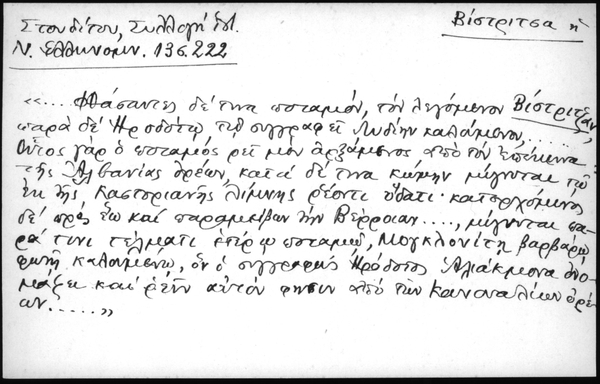 Στουδίτου, Συλλογή
Βίστριτσα ἡ
Ν. Ἑλληνομν. 13 σ. 222
«.... Φθάσαντες δέ τινα ποταμόν, τὸν λεγόμενον Βίστριτζαν,
παρὰ δὲ Ἡροδότῳ τῷ συγγραφεῖ Λυδίην καλούμενον, .....
Οὗτος γὰρ ὁ ποταμὸς ῥεῖ μὲν ἀρξάμενος ἀπὸ τῶν ἐπέκεινα
τῆς Ἀλβανίας ὀρέων, κατὰ δέ τινα κώμην μίγνυται τῷ
ἐκ τῆς Καστοριανῆς λίμνης ῥέοντι ὕδατι· κατερχόμενος
δὲ πρὸς ἕω καὶ παραμείβων τὴν Βέρροιαν ...., μίγνυται πα-
ρά τινι τέλματι ἑτέρῳ ποταμῷ, Μογκλονίτῃ βαρβάρῳ
φωνῇ καλουμένῳ, ὃν ὁ συγγραφεὺς Ἡρόδοτος Ἁλιάκμονα ὀνο-
μάζει καὶ ῥεῖν αὐτόν φησιν ἀπὸ τῶν Καναναλίων ὀρέ-
ων......»